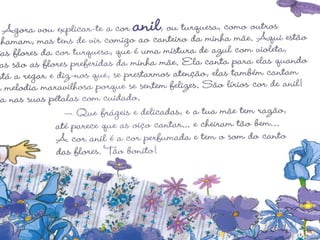 Agora vou explicar-te a cor anil, ou turquesa, como outros
chamam, mas tens de vir comigo ao canteiro da minha mãe. Aqui estão
as flores da cor turquesa, que é uma mistura de azul com violeta,
as são as flores preferidas da minha mãe. Ela canta para elas quando
stá a regar e diz-nos que, se prestarmos atenção, elas também cantam
melodia maravilhosa porque se sentem felizes. São lírios cor de anil!
a nas suas pétalas com cuidado.
— Que frágeis e delicadas, e a tua mãe tem razão,
até parece que as oiço cantar... e cheiram tão bem...
A cor anil é a cor perfumada e tem o som do canto
das flores. Tão bonito!